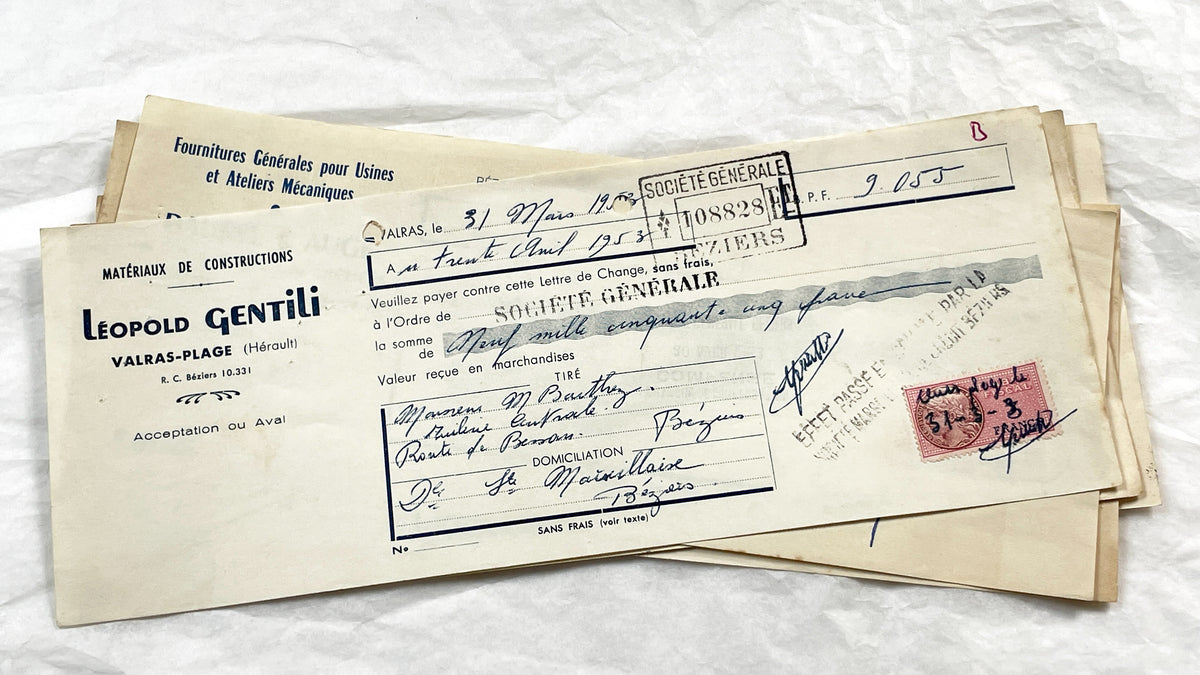 Fournitures Générales pour Usines
et Ateliers Mécaniques
MATÉRIAUX DE CONSTRUCTIONS
LÉOPOLD GENTILI
VALRAS-PLAGE (Hérault)
R. C. Béziers 10.331
Acceptation ou Aval
B
VALRAS, le 31 Mars 1953
SOCIÉTÉ GÉNÉRALE
108828
BÉZIERS
B. P. F. 9.055
Au trente Avril 1953
Veuillez payer contre cette Lettre de Change, sans frais,
à l'Ordre de SOCIÉTÉ GÉNÉRALE
la somme de Neuf mille cinquante cinq francs
Valeur reçue en marchandises
TIRÉ
Monsieur M Barthez
Huilerie Centrale
Route de Bessan. Béziers
DOMICILIATION
Sté Marseillaise
Béziers
SANS FRAIS (voir texte)
No
EFFET PASSÉ
PAR LA
31-3-3